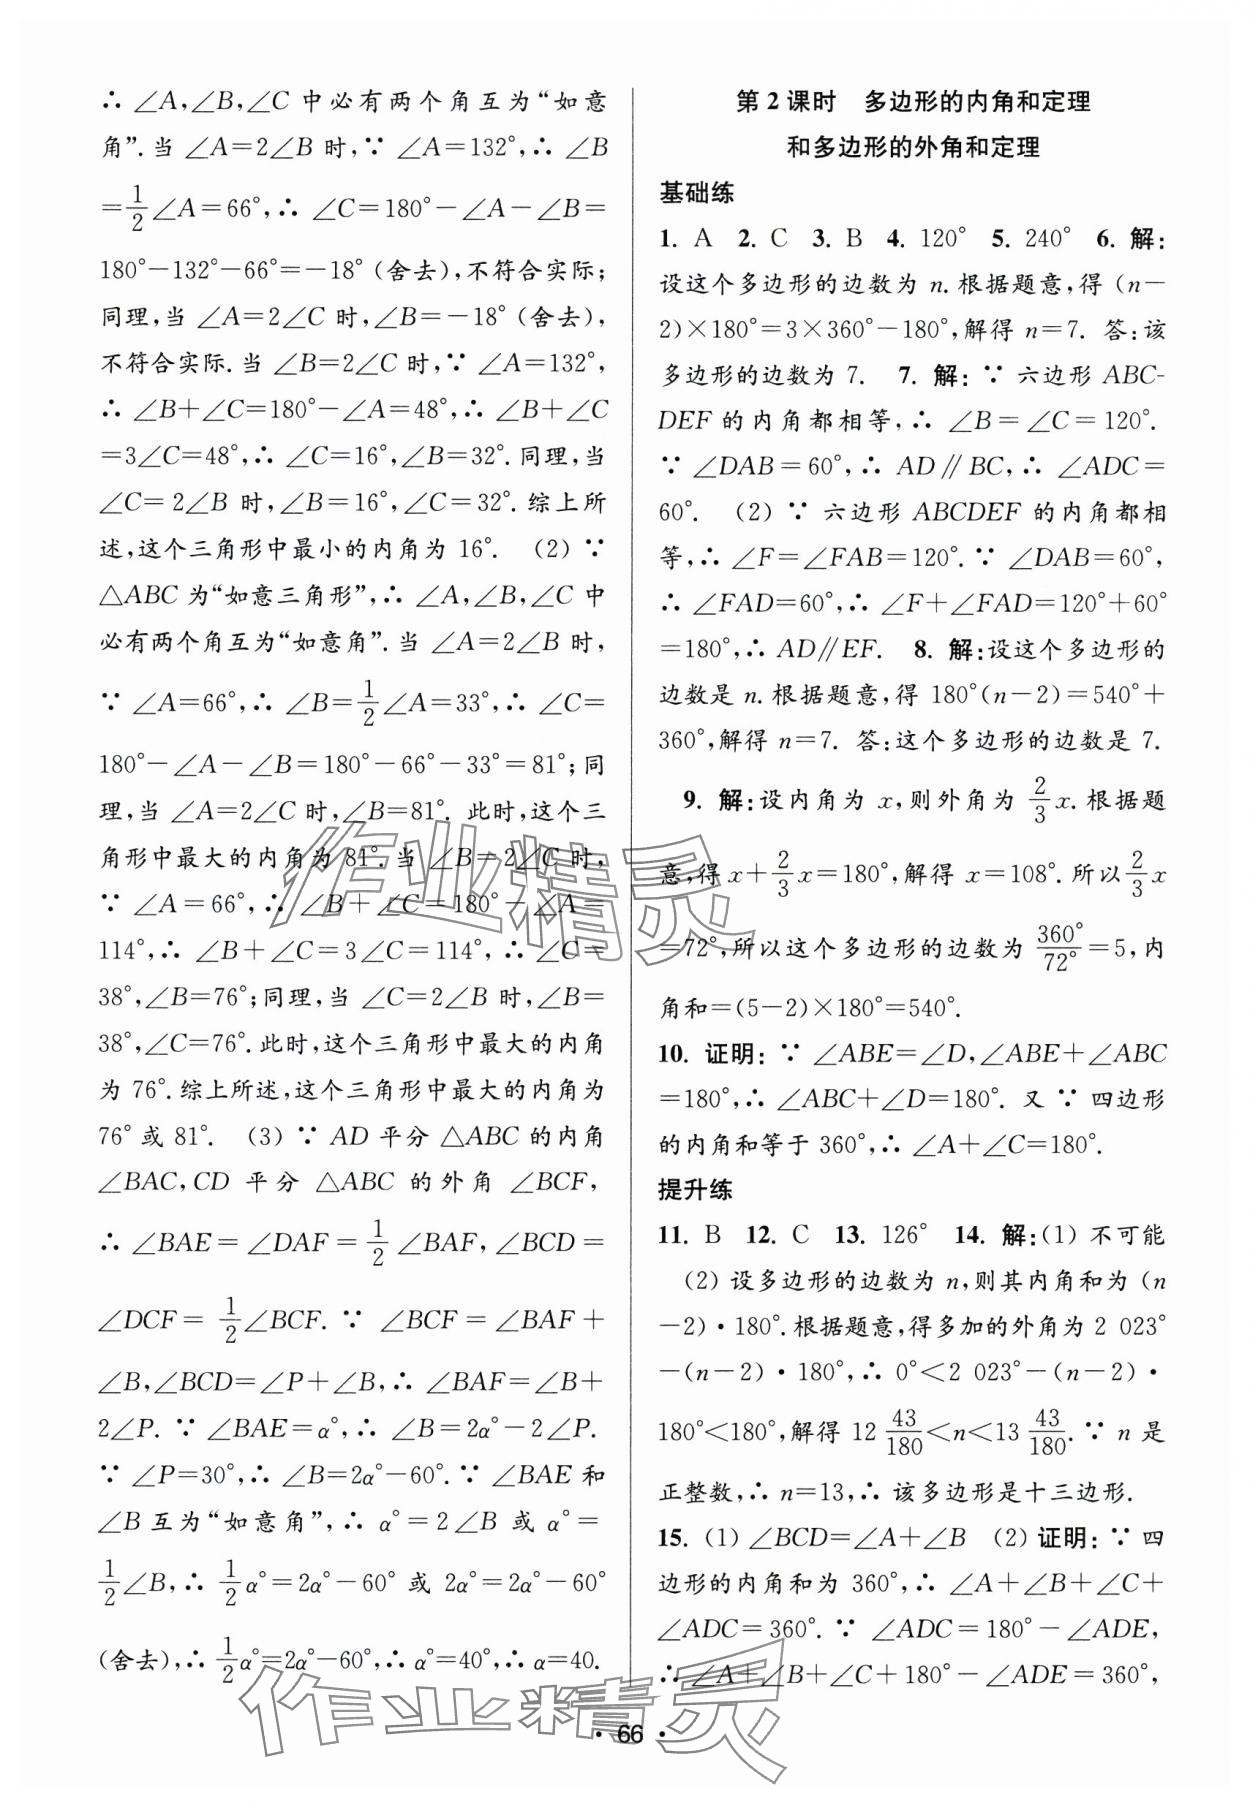 ∴ ∠A,∠B,∠C 中必有两个角互为“如意
角”.当 ∠A=2∠B 时,∵ ∠A=132°,∴ ∠B
=1/2∠A=66°,∴ ∠C=180°-∠A-∠B=
180°-132°-66°=-18°(舍去),不符合实际;
同理,当 ∠A=2∠C 时,∠B=-18°(舍去),
不符合实际.当 ∠B=2∠C 时,∵ ∠A=132°,
∴ ∠B+∠C=180°-∠A=48°,∴ ∠B+∠C
=3∠C=48°,∴ ∠C=16°,∠B=32°.同理,当
∠C=2∠B 时,∠B=16°,∠C=32°.综上所
述,这个三角形中最小的内角为 16°. (2) ∵
△ABC 为“如意三角形”,∴ ∠A,∠B,∠C 中
必有两个角互为“如意角”.当 ∠A=2∠B 时,
∵ ∠A=66°,∴ ∠B=1/2∠A=33°,∴ ∠C=
180°-∠A-∠B=180°-66°-33°=81°;同
理,当 ∠A=2∠C 时,∠B=81°. 此时,这个三
角形中最大的内角为 81°.当 ∠B=2∠C 时,
∵ ∠A=66°,∴ ∠B+∠C=180°-∠A=
114°,∴ ∠B+∠C=3∠C=114°,∴ ∠C=
38°,∠B=76°;同理,当 ∠C=2∠B 时,∠B=
38°,∠C=76°.此时,这个三角形中最大的内角
为 76°.综上所述,这个三角形中最大的内角为
76° 或 81°. (3) ∵ AD 平分 △ABC 的内角
∠BAC,CD 平分 △ABC 的外角 ∠BCF,
∴ ∠BAE=∠DAF=1/2∠BAF,∠BCD=
∠DCF=1/2∠BCF. ∵ ∠BCF=∠BAF+
∠B,∠BCD=∠P+∠B,∴ ∠BAF=∠B+
2∠P. ∵ ∠BAE=α°,∴ ∠B=2α°-2∠P.
∵ ∠P=30°,∴ ∠B=2α°-60°.∵ ∠BAE 和
∠B 互为“如意角”,∴ α°=2∠B 或 α°=
1/2∠B,∴ 1/2α°=2α°-60° 或 2α°=2α°-60°
(舍去),∴ 1/2α°=2α°-60°,∴ α°=40°,∴ α=40.
第 2 课时 多边形的内角和定理
和多边形的外角和定理
基础练
1. A 2. C 3. B 4. 120° 5. 240° 6. 解:
设这个多边形的边数为 n.根据题意,得 (n-
2)×180°=3×360°-180°,解得 n=7. 答:该
多边形的边数为 7. 7. 解: ∵ 六边形 ABC-
DEF 的内角都相等,∴ ∠B=∠C=120°.
∵ ∠DAB=60°,∴ AD∥BC,∴ ∠ADC=
60°. (2) ∵ 六边形 ABCDEF 的内角都相
等,∴ ∠F=∠FAB=120°.∵ ∠DAB=60°,
∴ ∠FAD=60°,∴ ∠F+∠FAD=120°+60°
=180°,∴ AD∥EF. 8. 解:设这个多边形的
边数是 n.根据题意,得 180°(n-2)=540°+
360°,解得 n=7. 答:这个多边形的边数是 7.
9. 解:设内角为 x,则外角为 2/3x.根据题
意,得 x+2/3x=180°,解得 x=108°.所以2/3x
=72°,所以这个多边形的边数为 360°/72°=5,内
角和=(5-2)×180°=540°.
10. 证明: ∵ ∠ABE=∠D,∠ABE+∠ABC
=180°,∴ ∠ABC+∠D=180°. 又 ∵ 四边形
的内角和等于 360°,∴ ∠A+∠C=180°.
提升练
11. B 12. C 13. 126° 14. 解:(1) 不可能
(2) 设多边形的边数为 n,则其内角和为 (n
-2)·180°.根据题意,得多加的外角为 2 023°
-(n-2)·180°,∴ 0°<2 023°-(n-2)·
180°<180°,解得 12 43/180<n<13 43/180.∵ n 是
正整数,∴ n=13,∴ 该多边形是十三边形.
15. (1) ∠BCD=∠A+∠B (2) 证明: ∵ 四
边形的内角和为 360°,∴ ∠A+∠B+∠C+
∠ADC=360°. ∵ ∠ADC=180°-∠ADE,
∴ ∠A+∠B+∠C+180°-∠ADE=360°,
· 66 ·
作业精灵
作业精灵